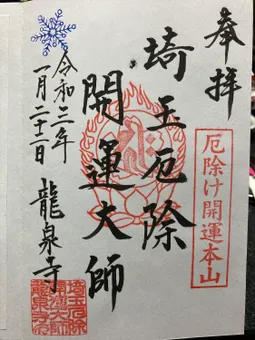 奉拝
厄除け開運本山
埼玉厄除
開運大師
令和三年
一月二十一日
龍泉寺
埼玉厄除
開運大師
龍泉寺